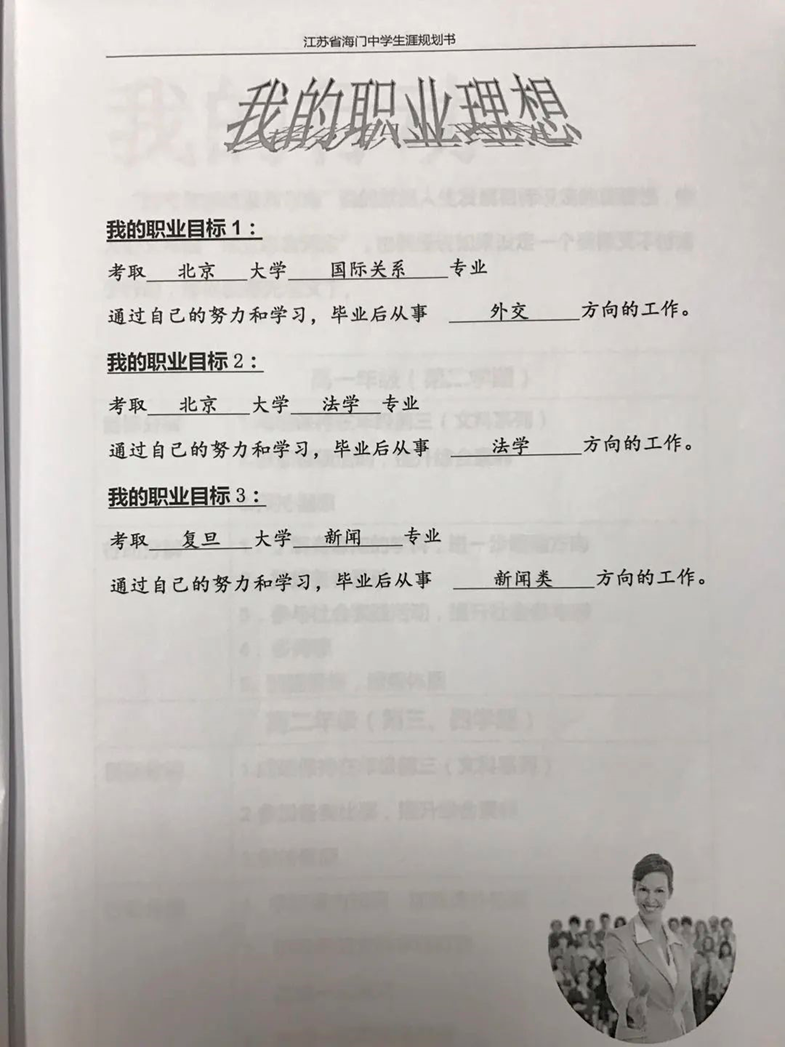 江苏省海门中学生涯规划书
我的职业理想
我的职业目标1：
考取 北京 大学 国际关系 专业
通过自己的努力和学习，毕业后从事 外交 方向的工作。
我的职业目标2：
考取 北京 大学 法学 专业
通过自己的努力和学习，毕业后从事 法学 方向的工作。
我的职业目标3：
考取 复旦 大学 新闻 专业
通过自己的努力和学习，毕业后从事 新闻类 方向的工作。